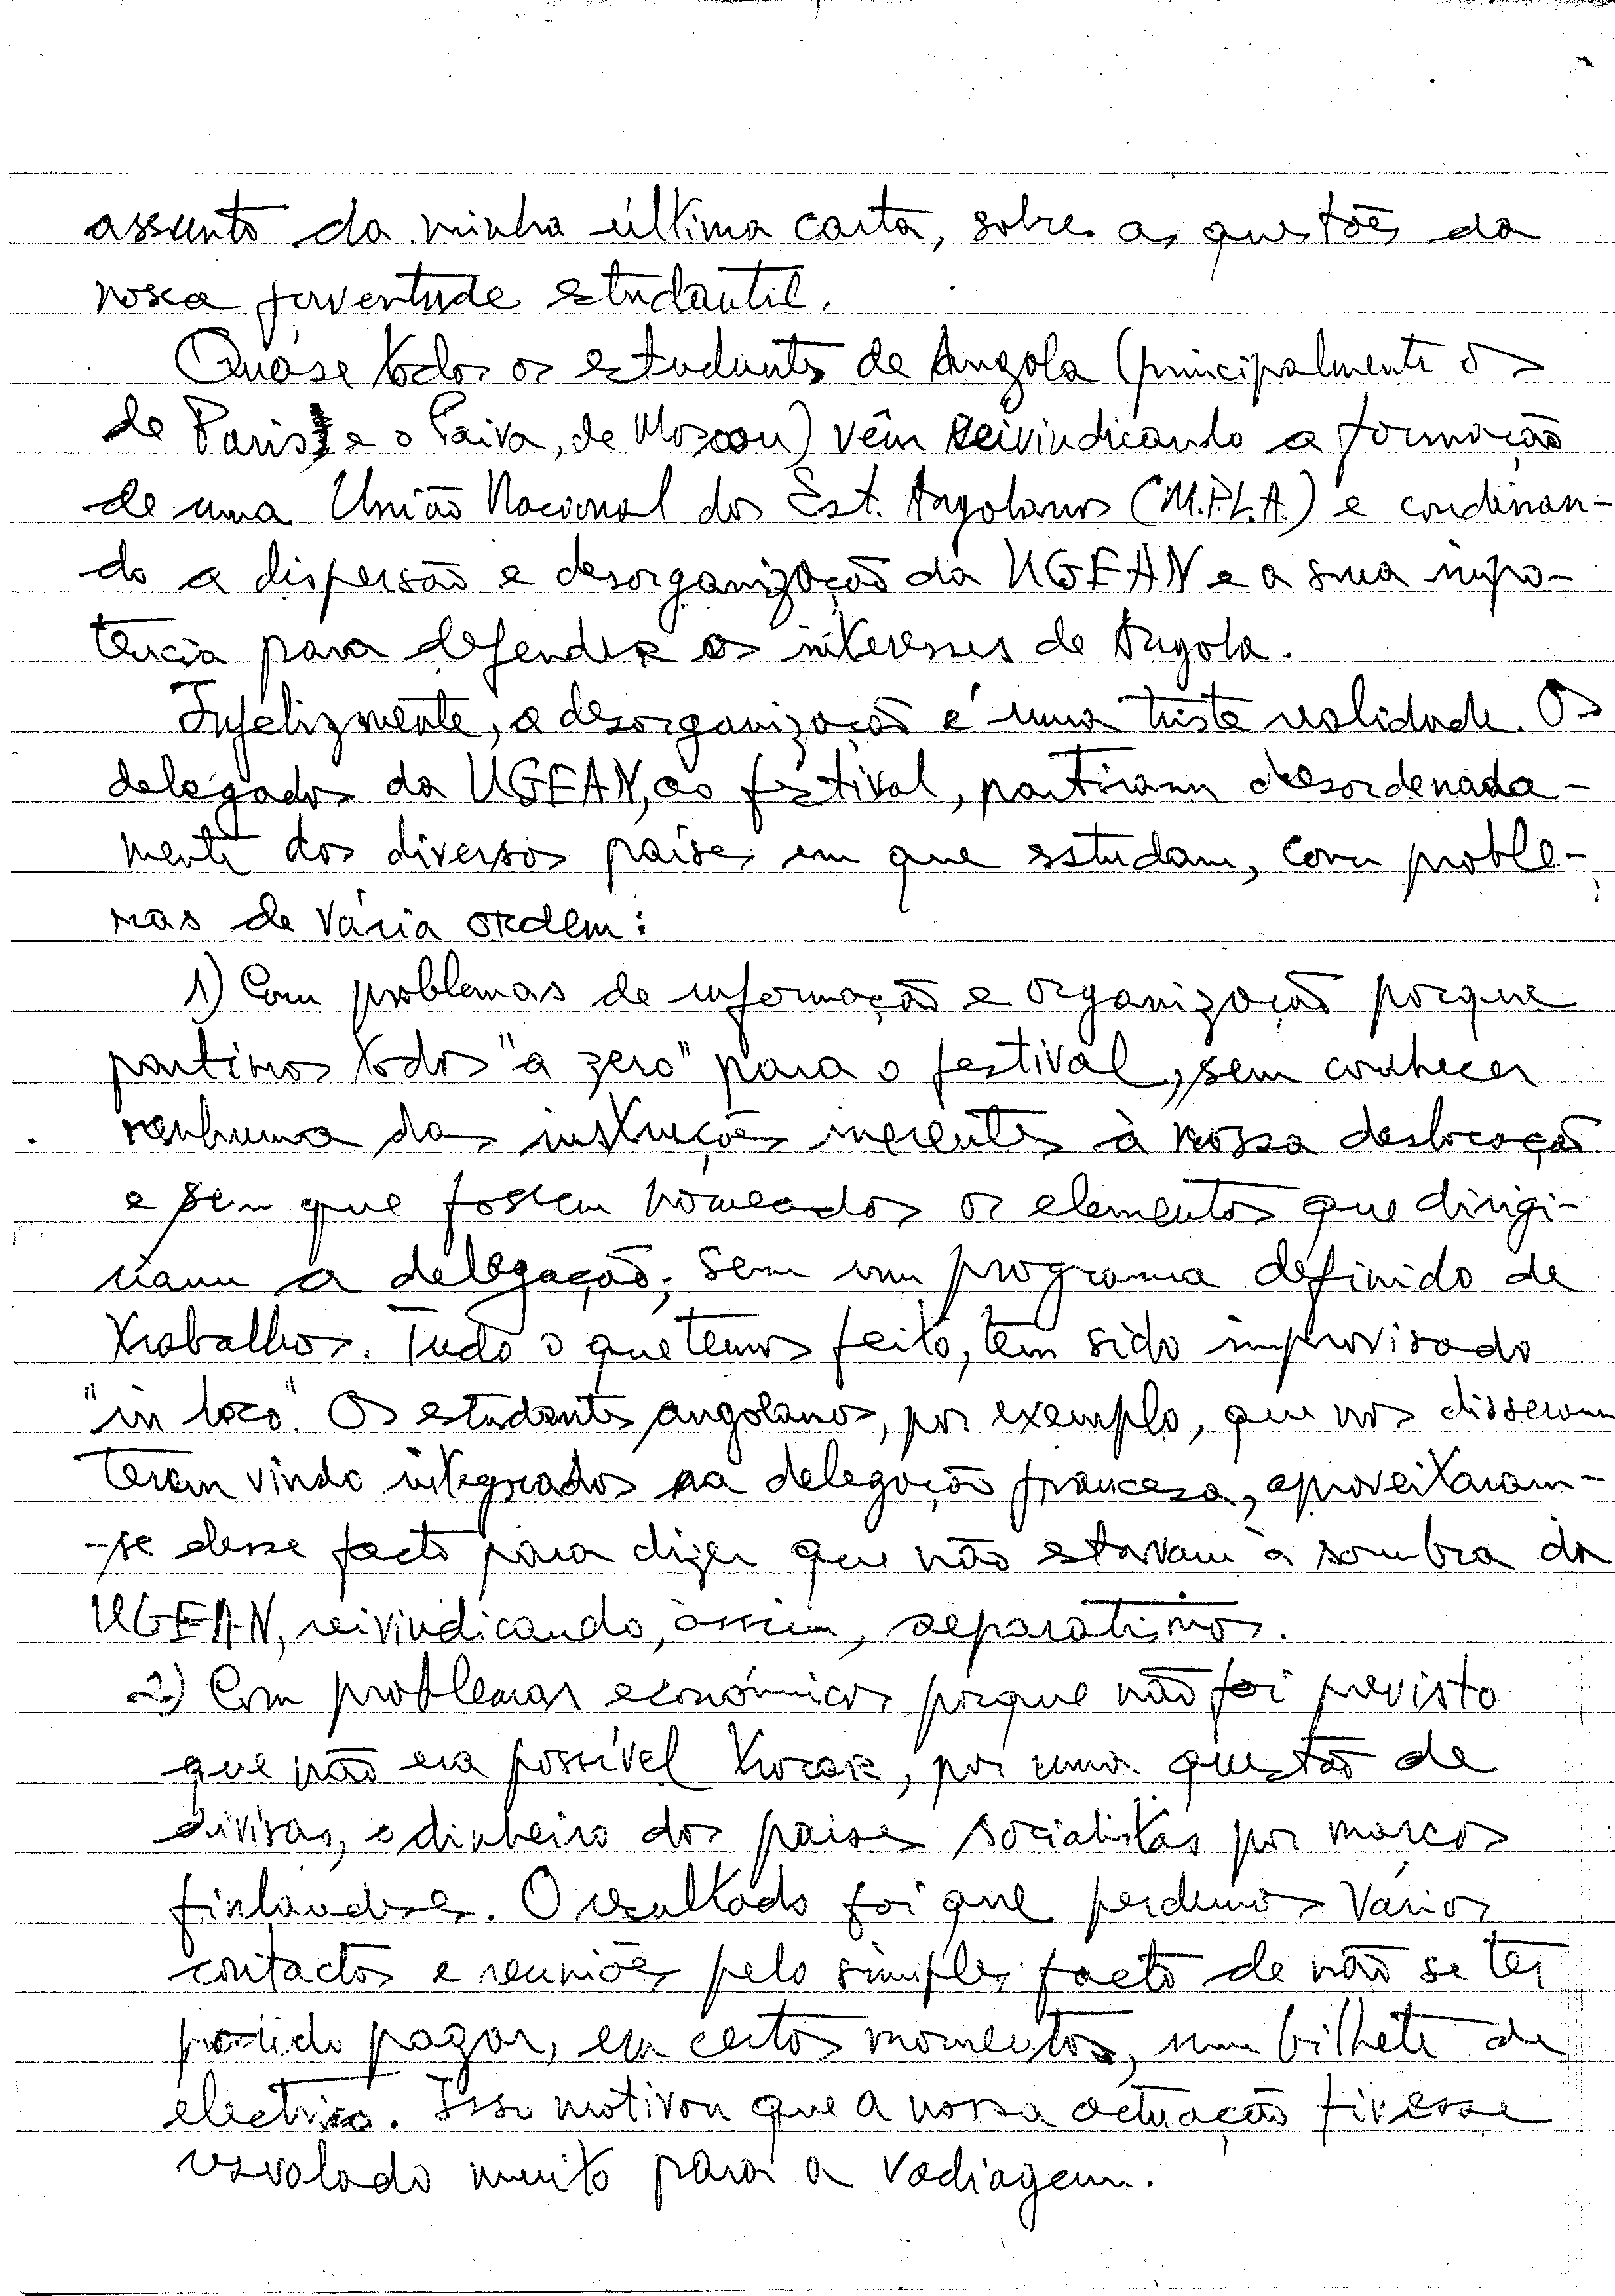 assunto da minha última carta, sobre as questões da
nossa juventude estudantil.
Quase todos os estudantes de Angola (principalmente os
de Paris e o Paiva, de Moscou) vêm reivindicando a formação
de uma União Nacional dos Est. Angolanos (M.P.L.A.) e condenan-
do a dispersão e desorganização da UGEAN e a sua impo-
tência para defender os interesses de Angola.
Infelizmente, a desorganização é uma triste realidade. Os
delegados da UGEAN, ao festival, partiram desordenada-
mente dos diversos países em que estudam, com proble-
mas de vária ordem:
1) Com problemas de informação e organização porque
partimos todos "a zero" para o festival, sem conhecer
nenhuma das instruções inerentes à nossa deslocação
e sem que fossem nomeados os elementos que dirigi-
riam a delegação; sem um programa definido de
trabalhos. Tudo o que temos feito, tem sido improvisado
"in loco". Os estudantes angolanos, por exemplo, que nos disseram
terem vindo integrados na delegação francesa, aproveitaram-
-se desse facto para dizer que não estavam à sombra da
UGEAN, reivindicando, assim, separatismos.
2) Com problemas económicos porque não foi previsto
que não era possível trocar, por uma questão de
divisas, o dinheiro dos países socialistas por marcos
finlandeses. O resultado foi que perdemos vários
contactos e reuniões pelo simples facto de não se ter
podido pagar, em certos momentos, um bilhete de
electrico. Isso motivou que a nossa actuação tivesse
resvalado muito para a vadiagem.